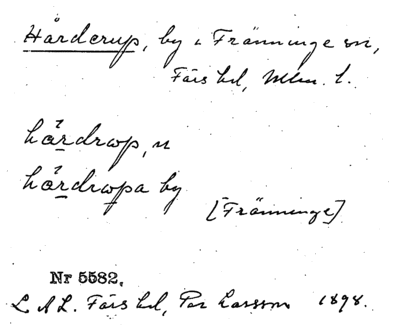 Hårderup, by i Fränninge sn,
Färs hd, Mlm. l.
hårdrωp, n
hårdrωpa by
[Fränninge]
Nr 5582.
L A L. Färs hd, Per Larsson 1898.